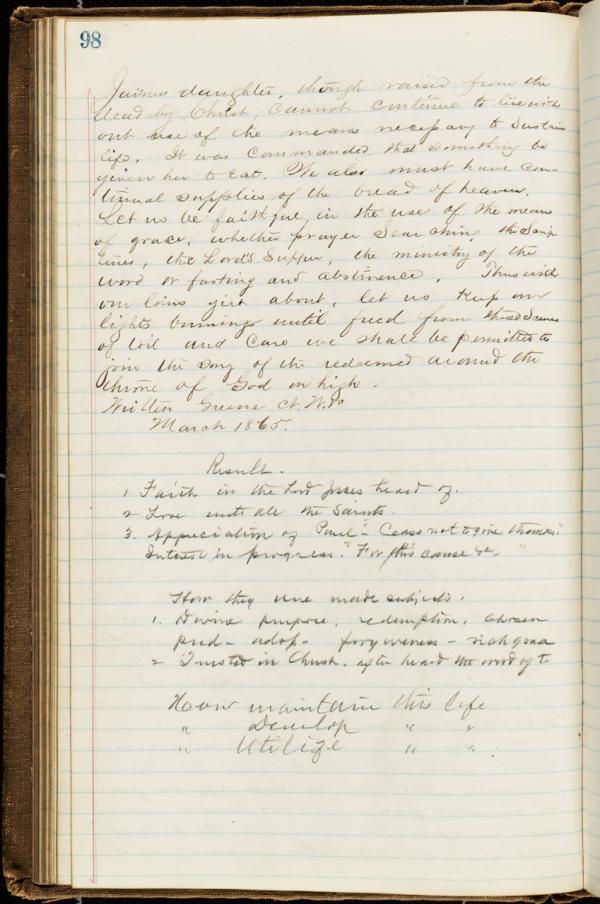 98
Jairus daughter, though raised from the
dead by Christ, cannot continue to live with
out use of the means necessary to sustain
life. It was commanded that something be
given her to eat. We also must have con-
tinual supplies of the bread of heaven.
Let us be faithful in the use of the means
of grace, whether prayer searching the Scrip
tures, the Lord's Supper, the ministry of the
word or fasting and abstinence. Thus with
our loins girt about, let us keep our
lights burning until freed from these scenes
of toil and care we shall be permitted to
join the song of the redeemed around the
throne of God on high.
Written Greene Ct.
March 1865.
Result.
1 Faith in the Lord Jesus heard of.
2 Love unto all the Saints.
3. Appreciation of Paul - "Cease not to give thanks."
Interest in progress. "For this cause &c. "
How they were made subjects.
1. Divine purpose, redemption, chosen
pred - adop - forgiveness - rich grace
2 Trusted in Christ. after heard the word of t
How maintain this life
" Develop " "
" Utilize " "